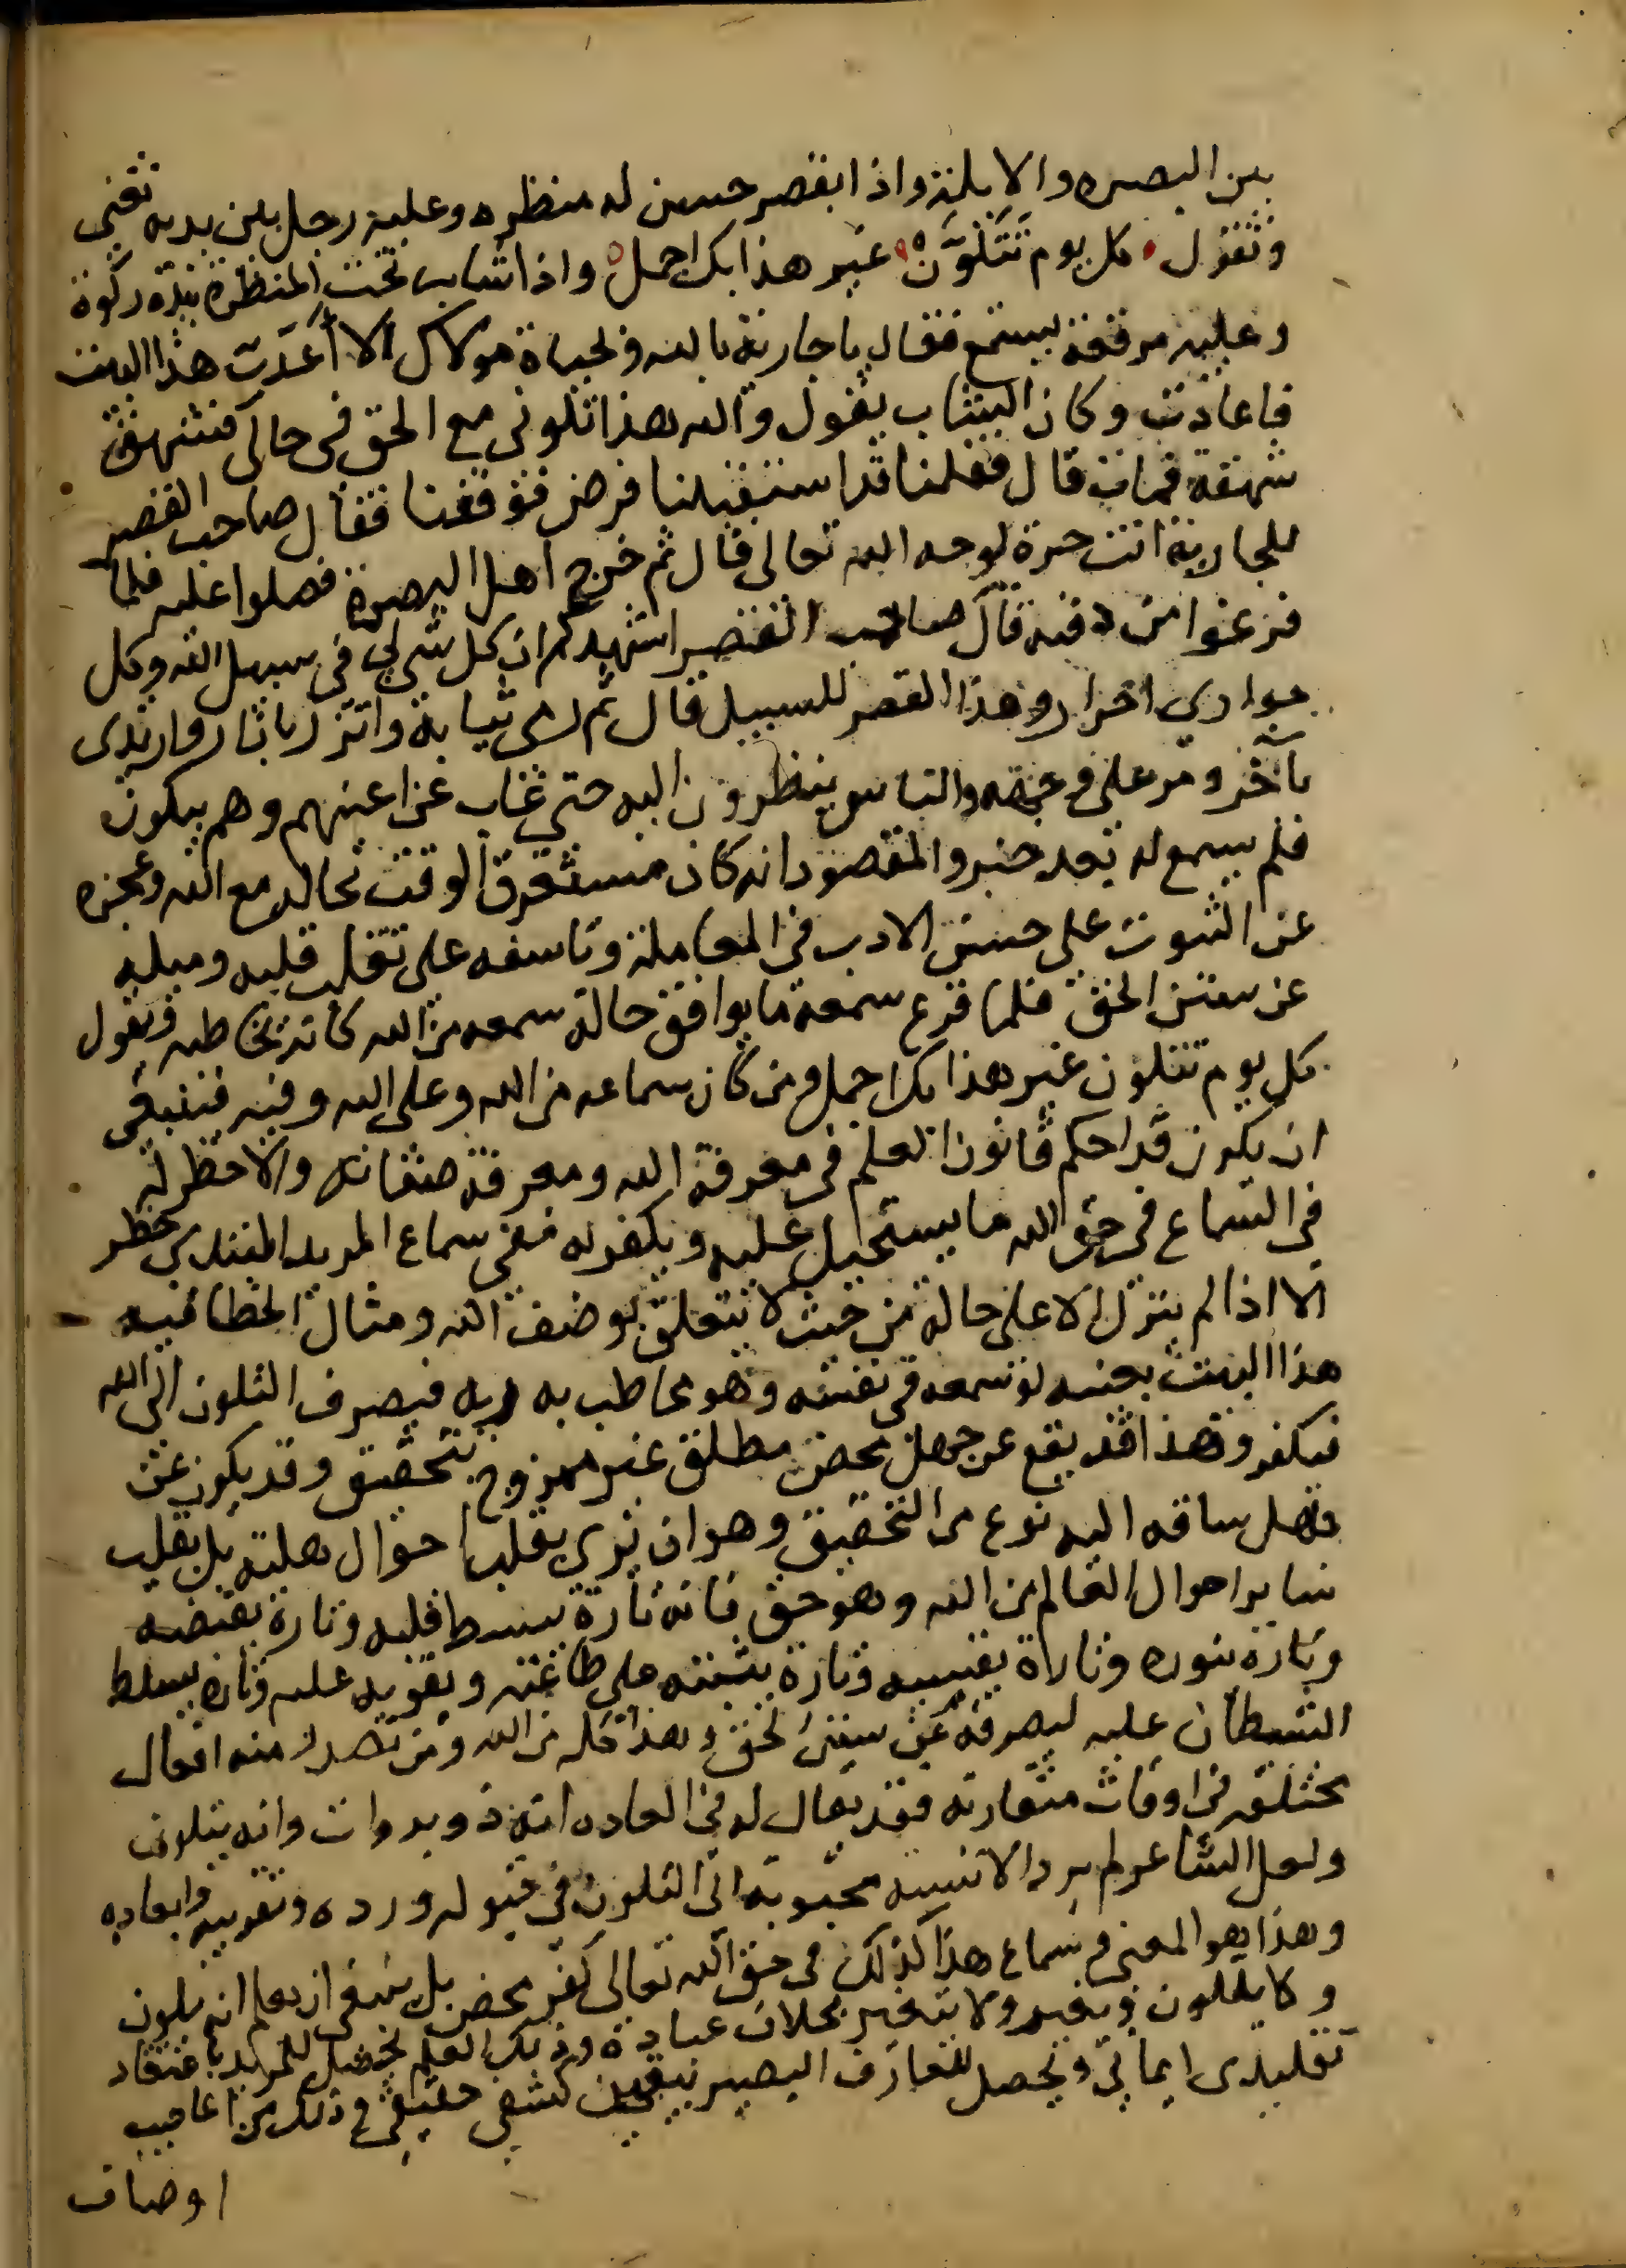 بين البصره والابلة واذا بقصر حسن له منظره وعليه رجل بين يديه تغني
وتقول كل يوم تتلون غير هذا بك اجمل واذا شاب تحت المنظرة بيده ركوة
وعليه مرقعة يستمع فقال يا جارية بالله وبحياة مولاك الا أعدت هذا البيت
فاعادت وكان الشاب يقول والله هذا تلوني مع الحق في حالي فشهق
شهقة فمات قال فقلنا قد استقبلنا فرض فوقفنا فقال صاحب القصر
للجارية انت حرة لوجه الله تعالى قال ثم خرج اهل البصرة فصلوا عليه فلما
فرغوا من دفنه قال صاحب القصر اشهدكم ان كل شي لي في سبيل الله وكل
جواري احرار وهذا القصر للسبيل قال ثم رمى ثيابه واتزر بازار وارتدى
بآخر ومر على وجهه والناس ينظرون اليه حتى غاب عن اعينهم وهم يبكون
فلم يسمع له بعد خبر والمقصود انه كان مستغرق الوقت بحاله مع الله وعجزه
عن الثبوت على حسن الادب في المعاملة وتاسفه على تقلب قلبه وميله
عن سنن الحق فلما قرع سمعه ما يوافق حاله سمعه من الله كانه يخاطبه ويقول
كل يوم تتلون غير هذا بك اجمل ومن كان سماعه من الله وعلى الله وفيه فينبغي
ان يكون قد احكم قانون العلم في معرفة الله ومعرفة صفاته والا خطر له
في السماع في حق الله ما يستحيل عليه ويكفر به ففي سماع المريد المبتدي خطر
الا اذا لم ينزل الا على حاله من حيث لا يتعلق بوصف الله ومثال الخطا فيه
هذا البيت بعينه لو سمعه في نفسه وهو مخاطب به ربه فيصرف التلون الى الله
فيكفر وهذا قد يقع عن جهل محض مطلق غير ممزوج بتحقيق وقد يكون عن
جهل ساقه اليه نوع من التحقيق وهو ان يرى تقلب احوال قلبه بل تقلب
ساير احوال العالم من الله وهو حق فانه تارة يبسط قلبه وتارة يقبضه
وتارة ينوره وتارة يقسيه وتارة يثبته على طاعته ويقويه عليه وتارة يسلط
الشيطان عليه ليصرفه عن سنن الحق وهذا كله من الله ومن تصدر منه افعال
مختلفة في اوقات متقاربه فقد يقال له في العاده انه ذو بدوات وانه يتلون
ولعل الشاعر لم يرد الا نسبة محبوبه الى التلون في قبوله ورده وتقريبه وابعاده
وهذا هو المعنى فسماع هذا كذلك في حق الله تعالى كفر محض بل ينبغي ان يعلم انه يلون
ولا يتلون ويغير ولا يتغير بخلاف عباده وذلك العلم يحصل للمريد باعتقاد
تقليدى ايماني ويحصل للعارف البصير بيقين كشفي حقيقي وذلك من اعاجيب
اوصاف